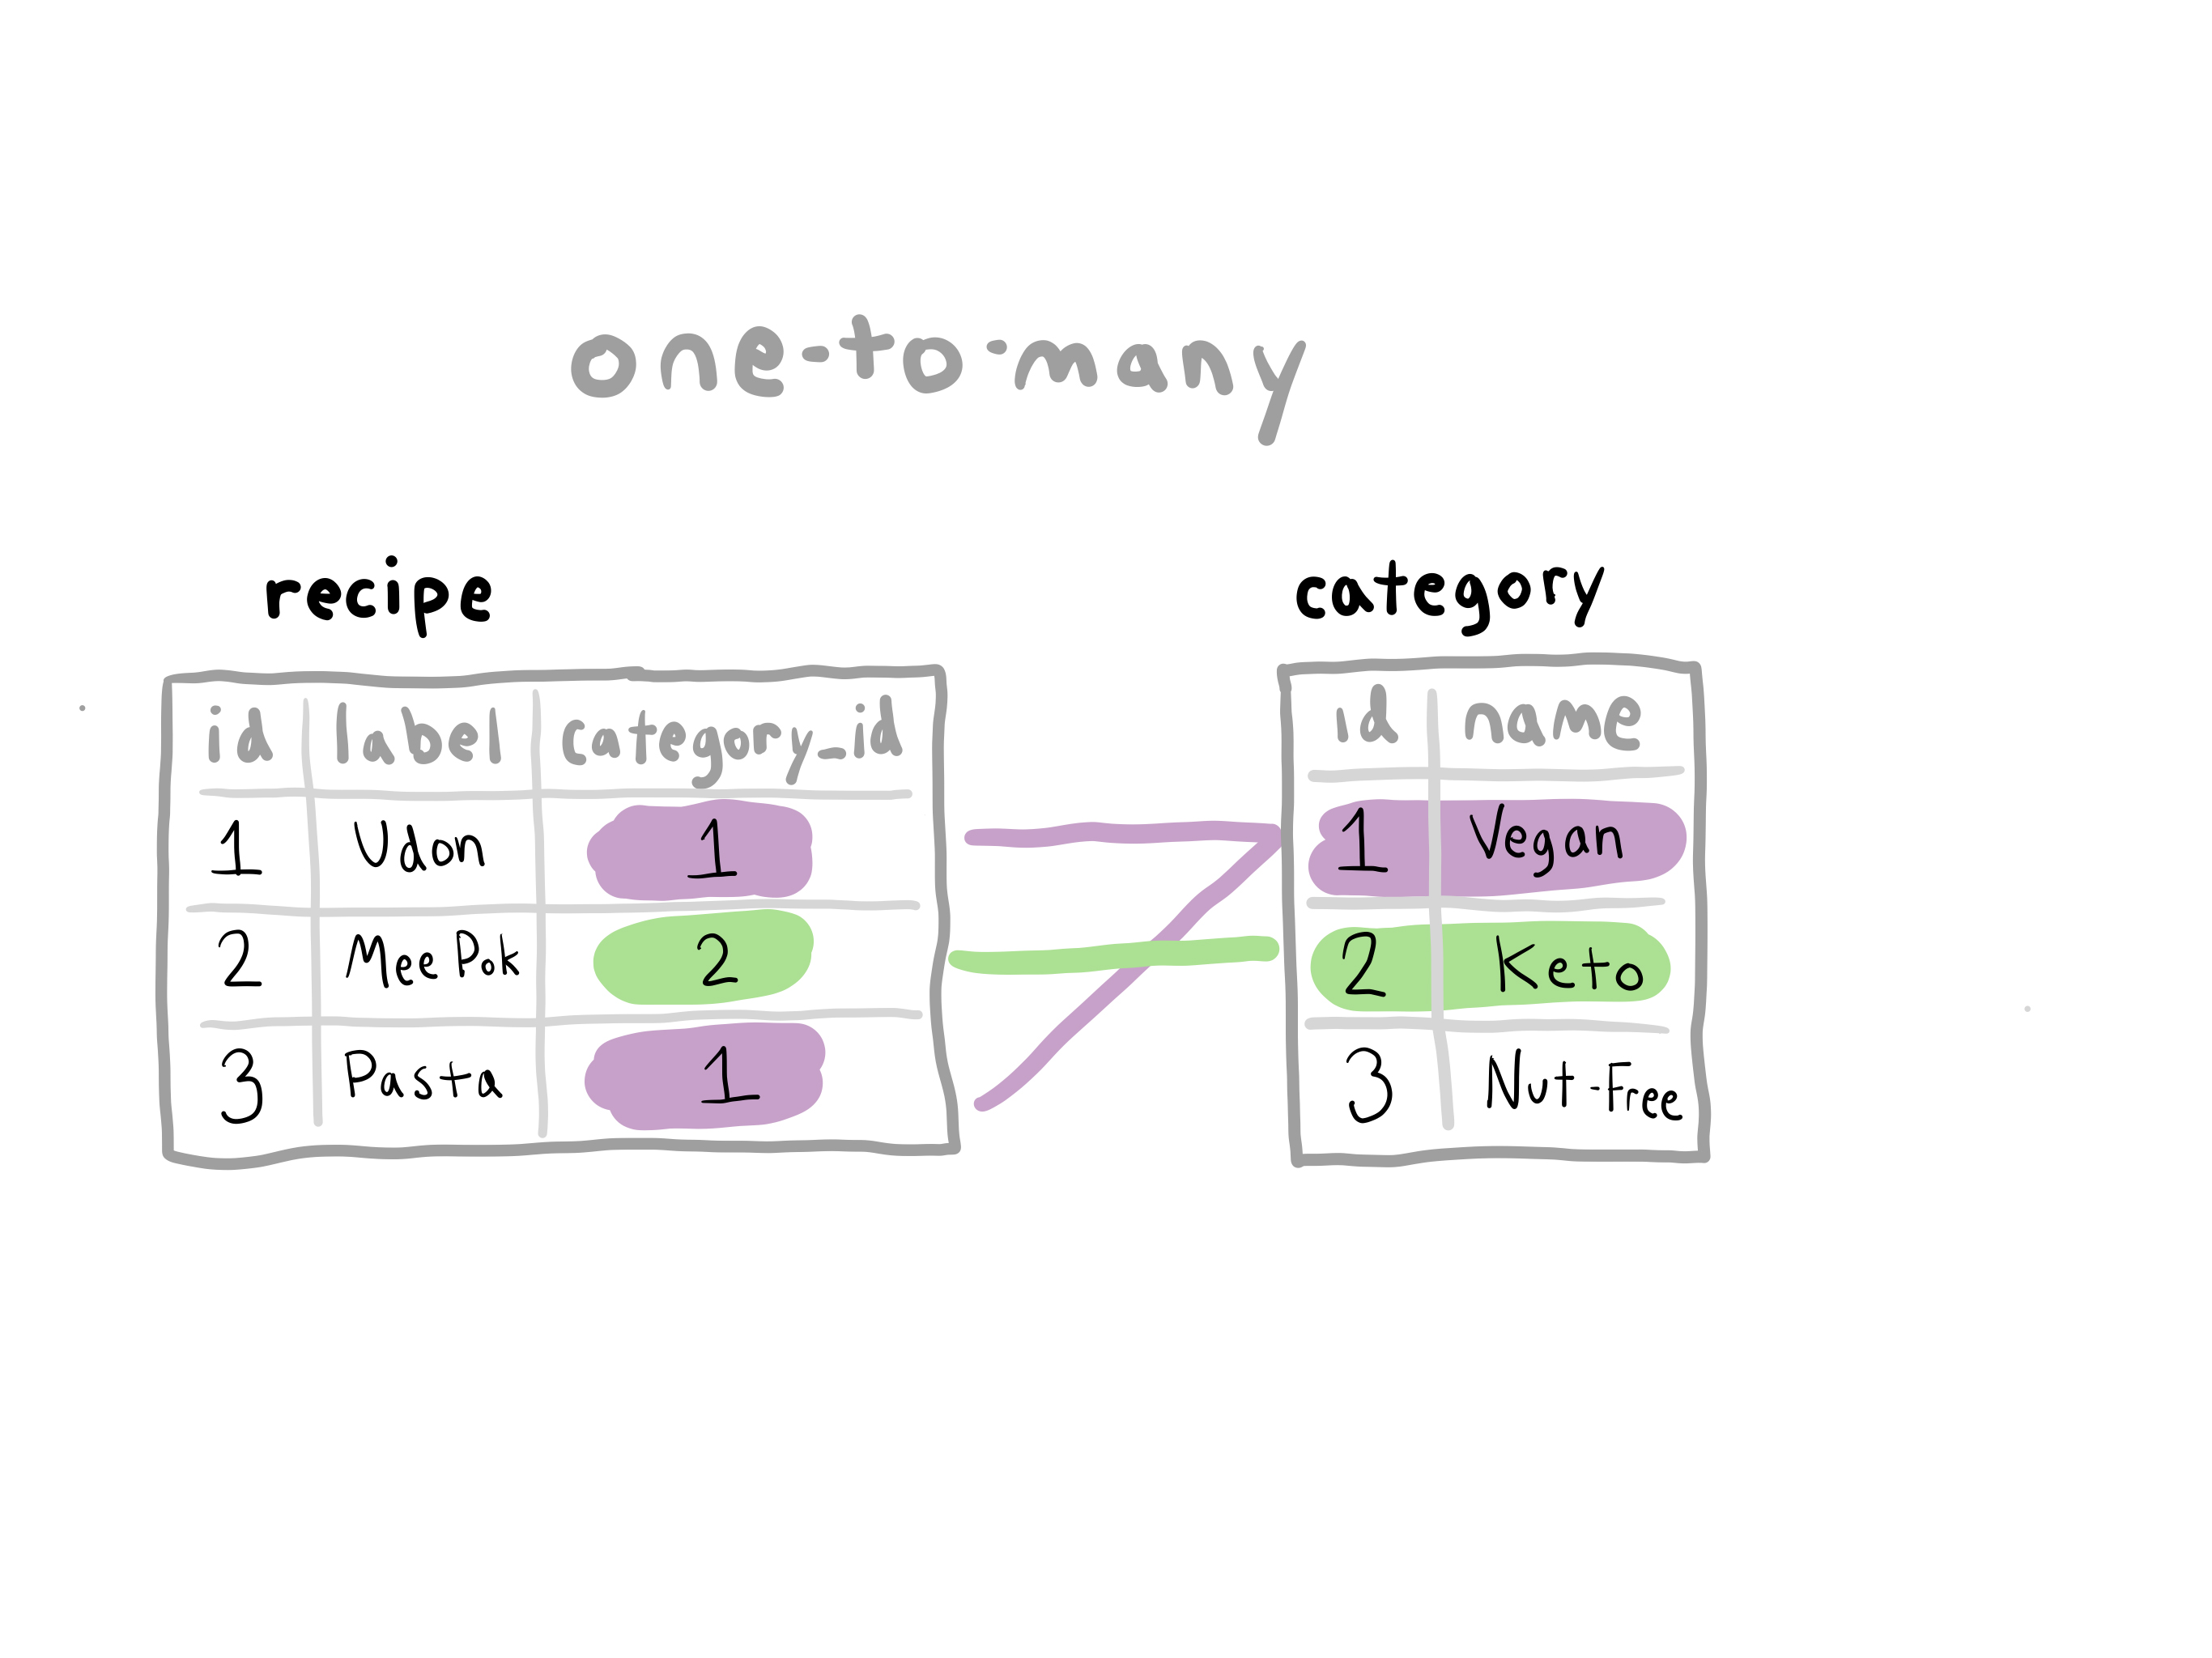 one-to-many
recipe
id label category_id
1 Udon 1
2 Mee Pok 2
3 Pasta 1
category
id name
1 Vegan
2 Keto
3 Nut Free